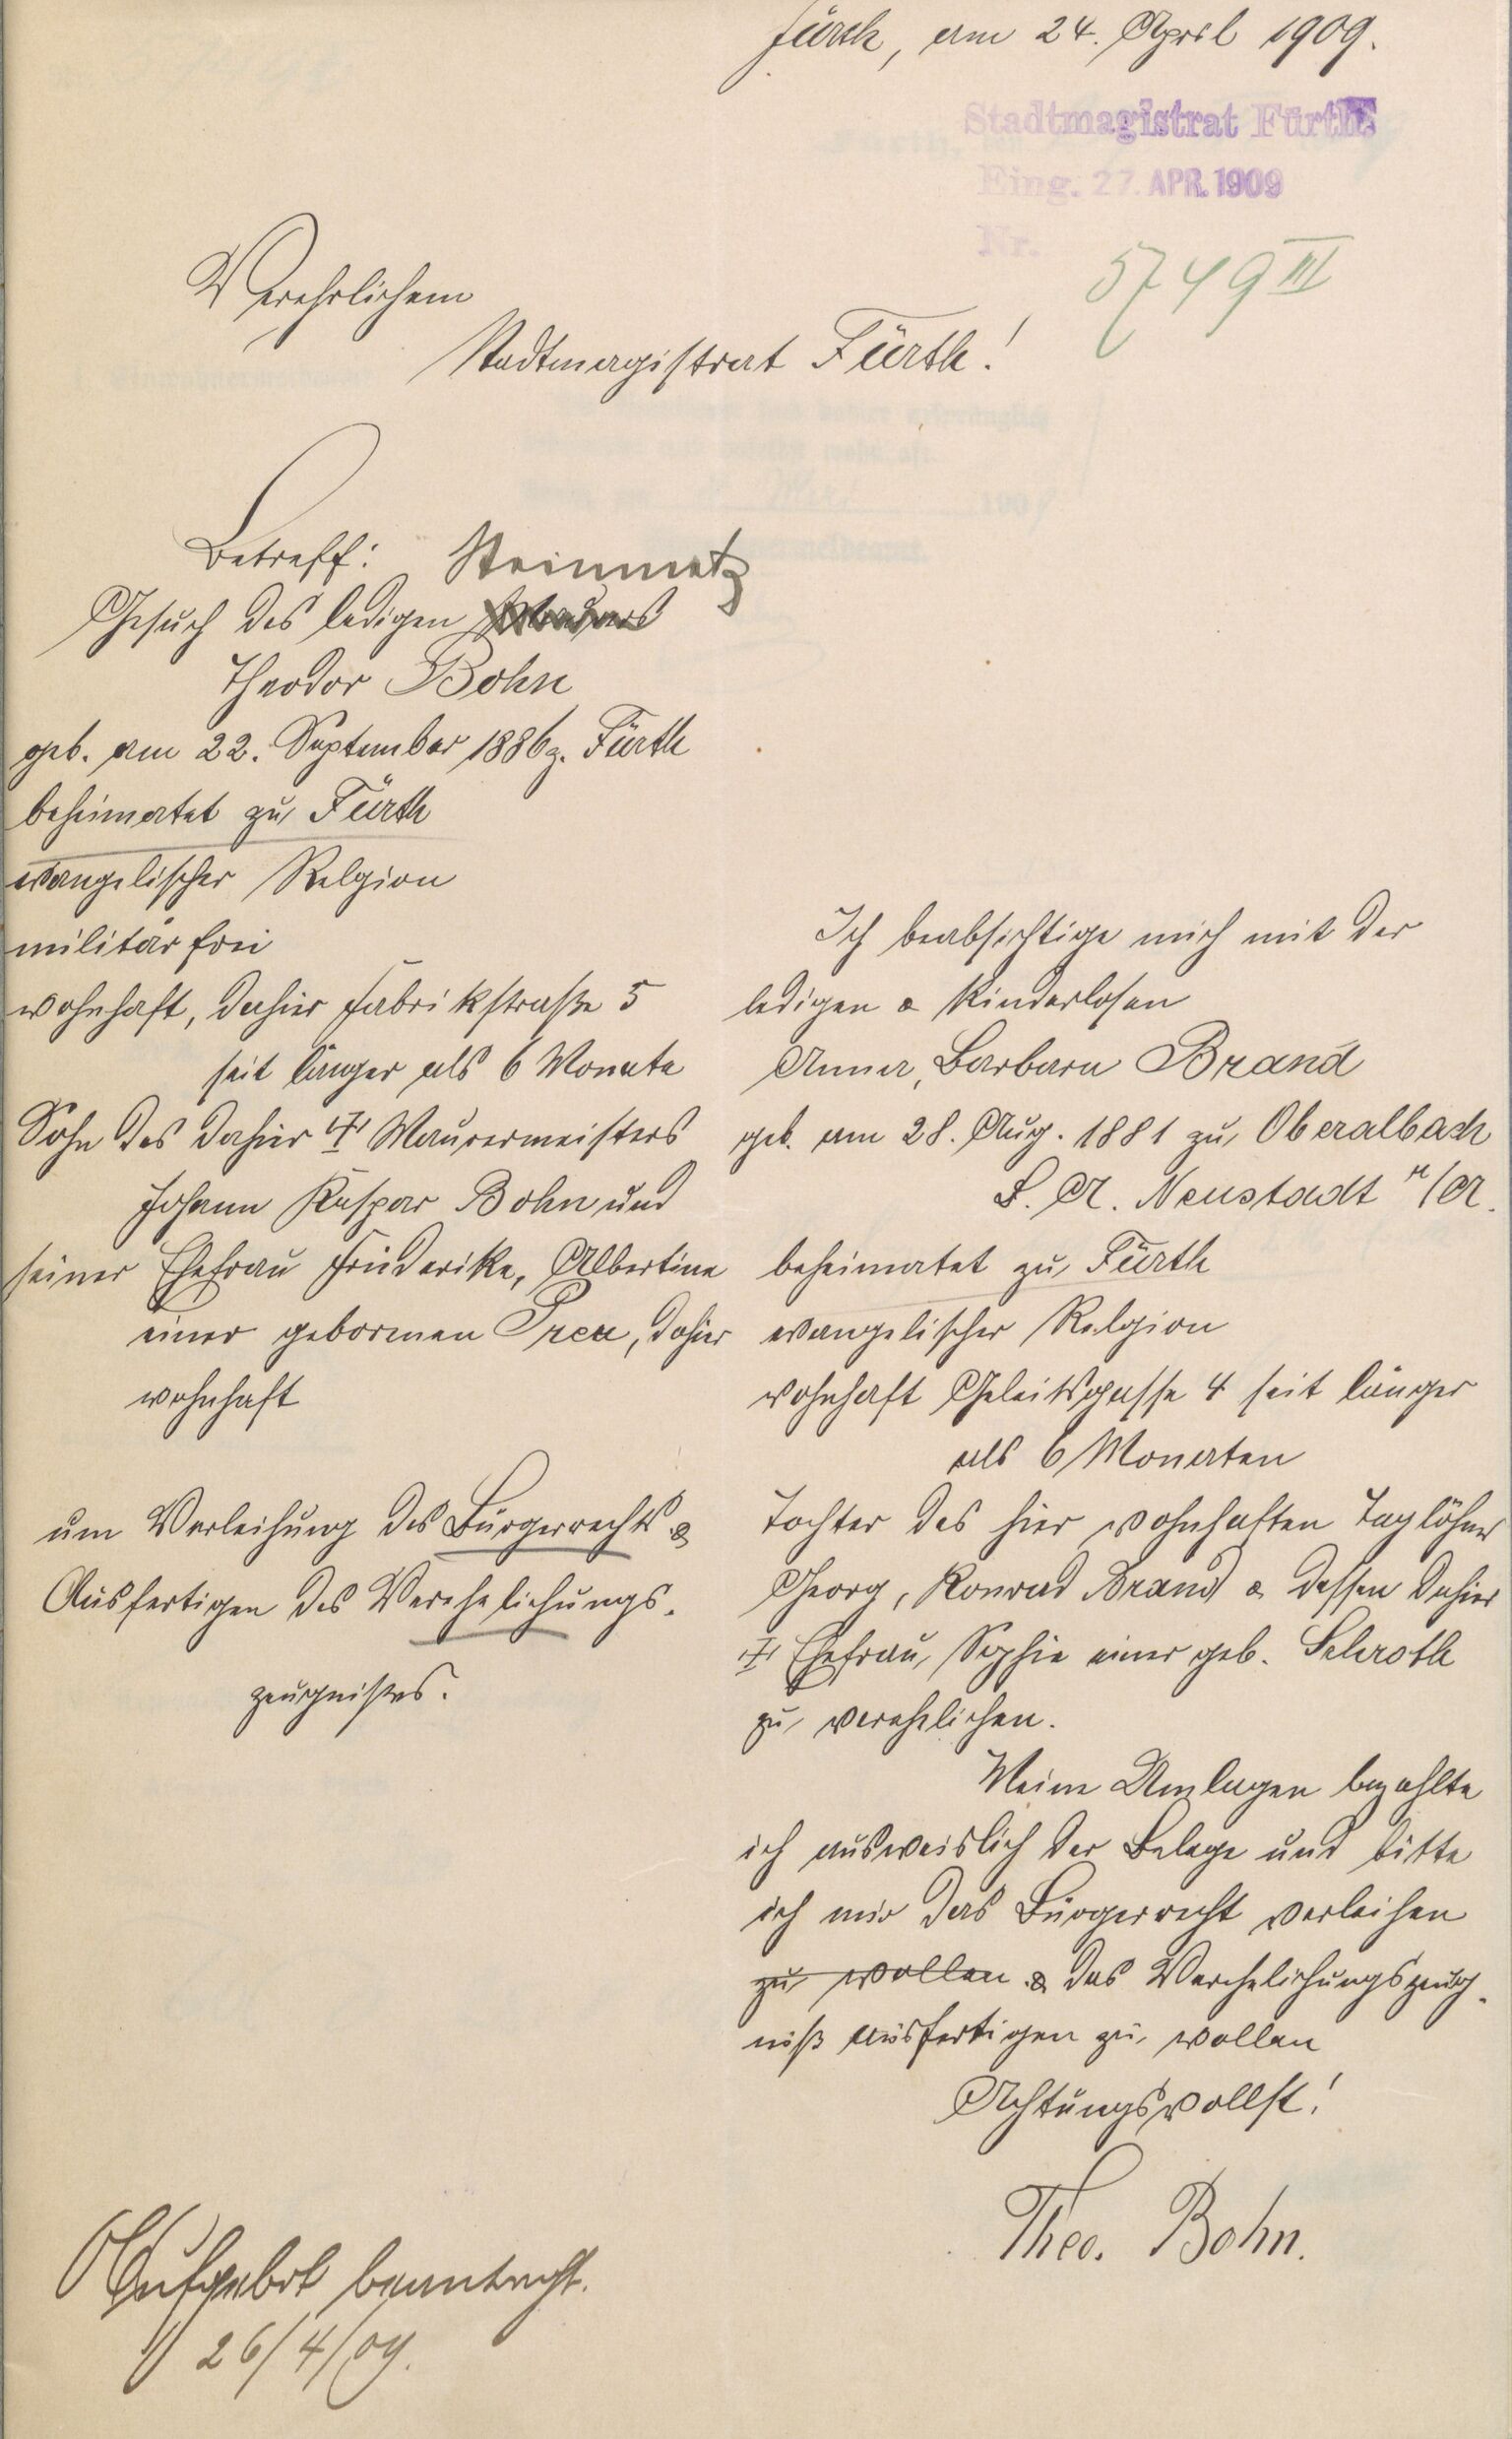 Fürth, am 24. April 1909.
Stadtmagistrat Fürth
Eing. 27. APR. 1909
Nr.
5749 III
Verehrlichem
Stadtmagistrat Fürth!
Betreff: Steinmetz
Gesuch des ledigen
Theodor Bohn
geb. am 22. September 1886 z. Fürth
beheimatet zu Fürth
evangelischer Relgion
militärfrei
wohnhaft, dahier Fabrikstraße 5
seit länger als 6 Monate
Sohn des dahier ✝ Maurermeisters
Johann Kaspar Bohn und
seiner Ehefrau Friederike, Albertine
einer gebornen, dahier
wohnhaft
um Verleihung des Bürgerrechts &
Ausfertigen des Verehelichungs-
zeugnißes.
Ich beabsichtige mich mit der
ledigen & kinderlosen
Anna, Barbara Brand
geb. am 28. Aug. 1881 zu Oberalbach
B. A. Neustadt a/A.
beheimatet zu Fürth
evangelischer Relgion
wohnhaft Geleitsgasse 4 seit länger
als 6 Monaten
Tochter des hier wohnhaften Taglöhners
Georg, Konrad Brand & dessen dahier
✝ Ehefrau, Sophie einer geb. Schroth
zu verehelichen.
Meine Umlagen bezahlte
ich ausweislich der Belege und bitte
ich mir das Bürgerrecht verleihen
zu wollen & das Verehelichungszeug-
niß ausfertigen zu wollen
Achtungsvollst!
Theo. Bohn.
Aufgebot beantragt.
26/4/09.